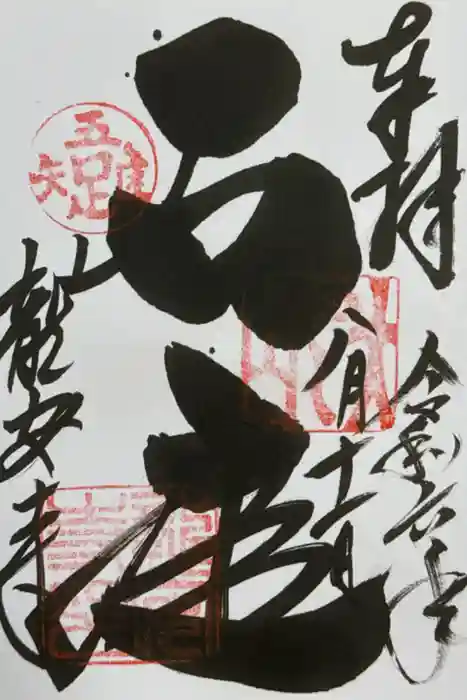 奉拝
令和六年
八月十一日
石庭
吾唯足知
龍安寺